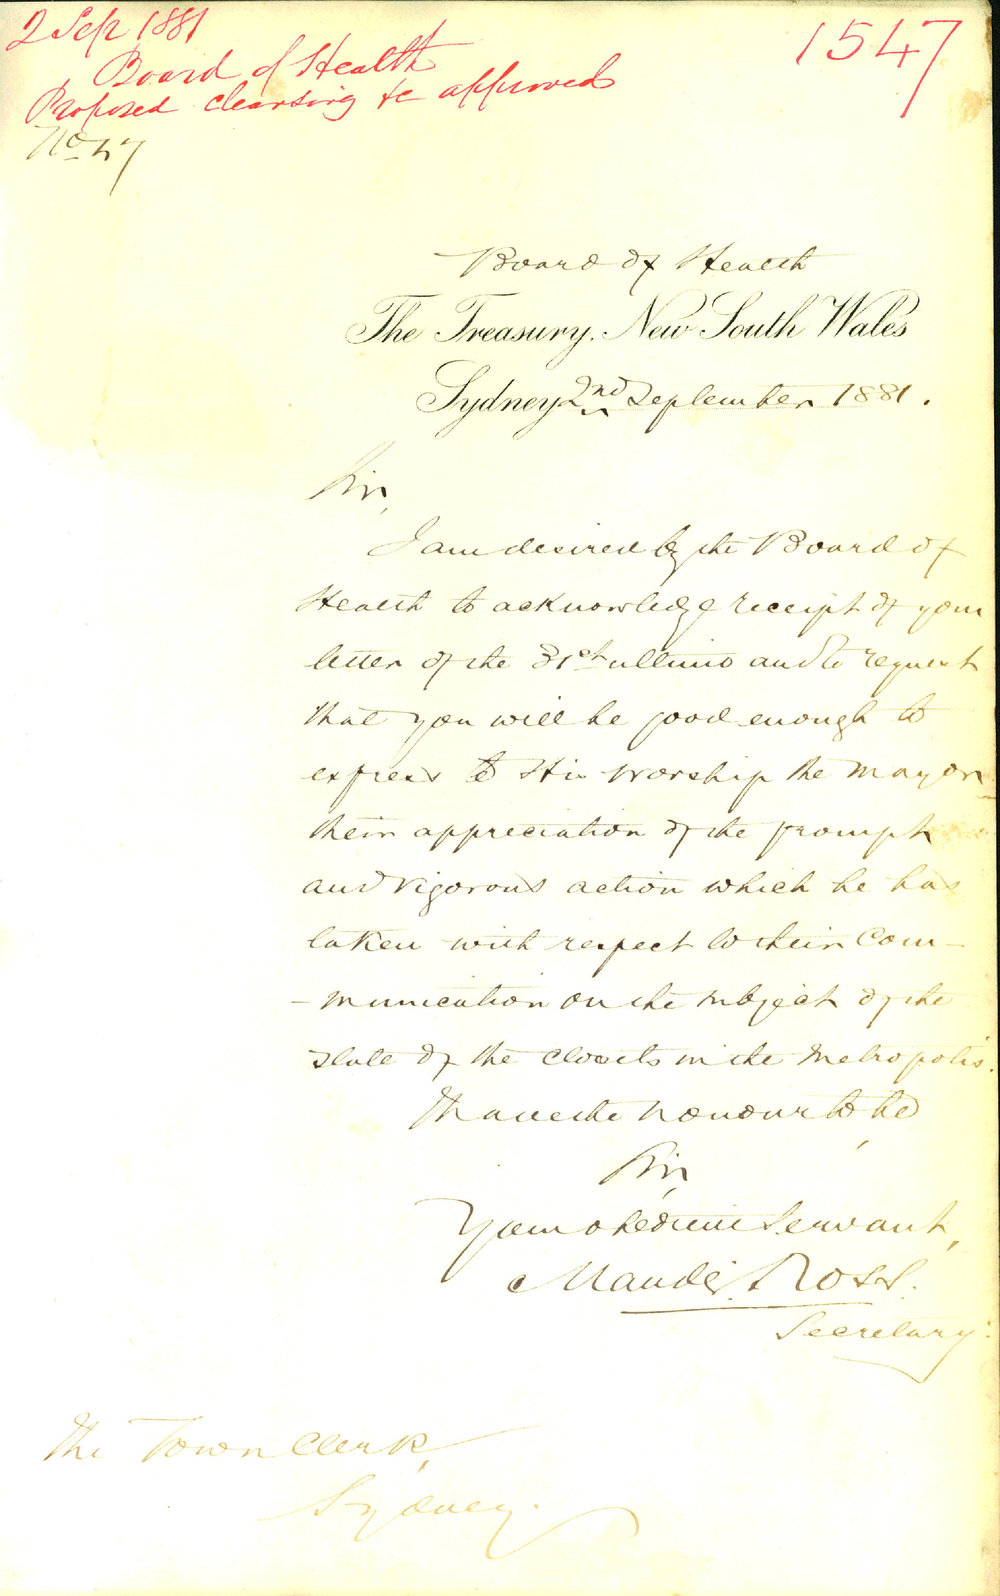 2 Sep 1881
1547
Board of Health
Proposed cleansing &c approved
No 47
Board of Health
The Treasury, New South Wales
Sydney 2nd September 1881.
Sir,
I am desired by the Board of
Health to acknowledge receipt of your
letter of the 31st ultimo and to request
that you will be good enough to
express to His Worship the Mayor
their appreciation of the prompt
and vigorous action which he has
taken with respect to their Com-
-munication on the subject of the
state of the closets in the Metropolis.
I have the honour to be,
Sir,
Your obedient Servant,
Ross.
Secretary.
The Town Clerk,
Sydney.